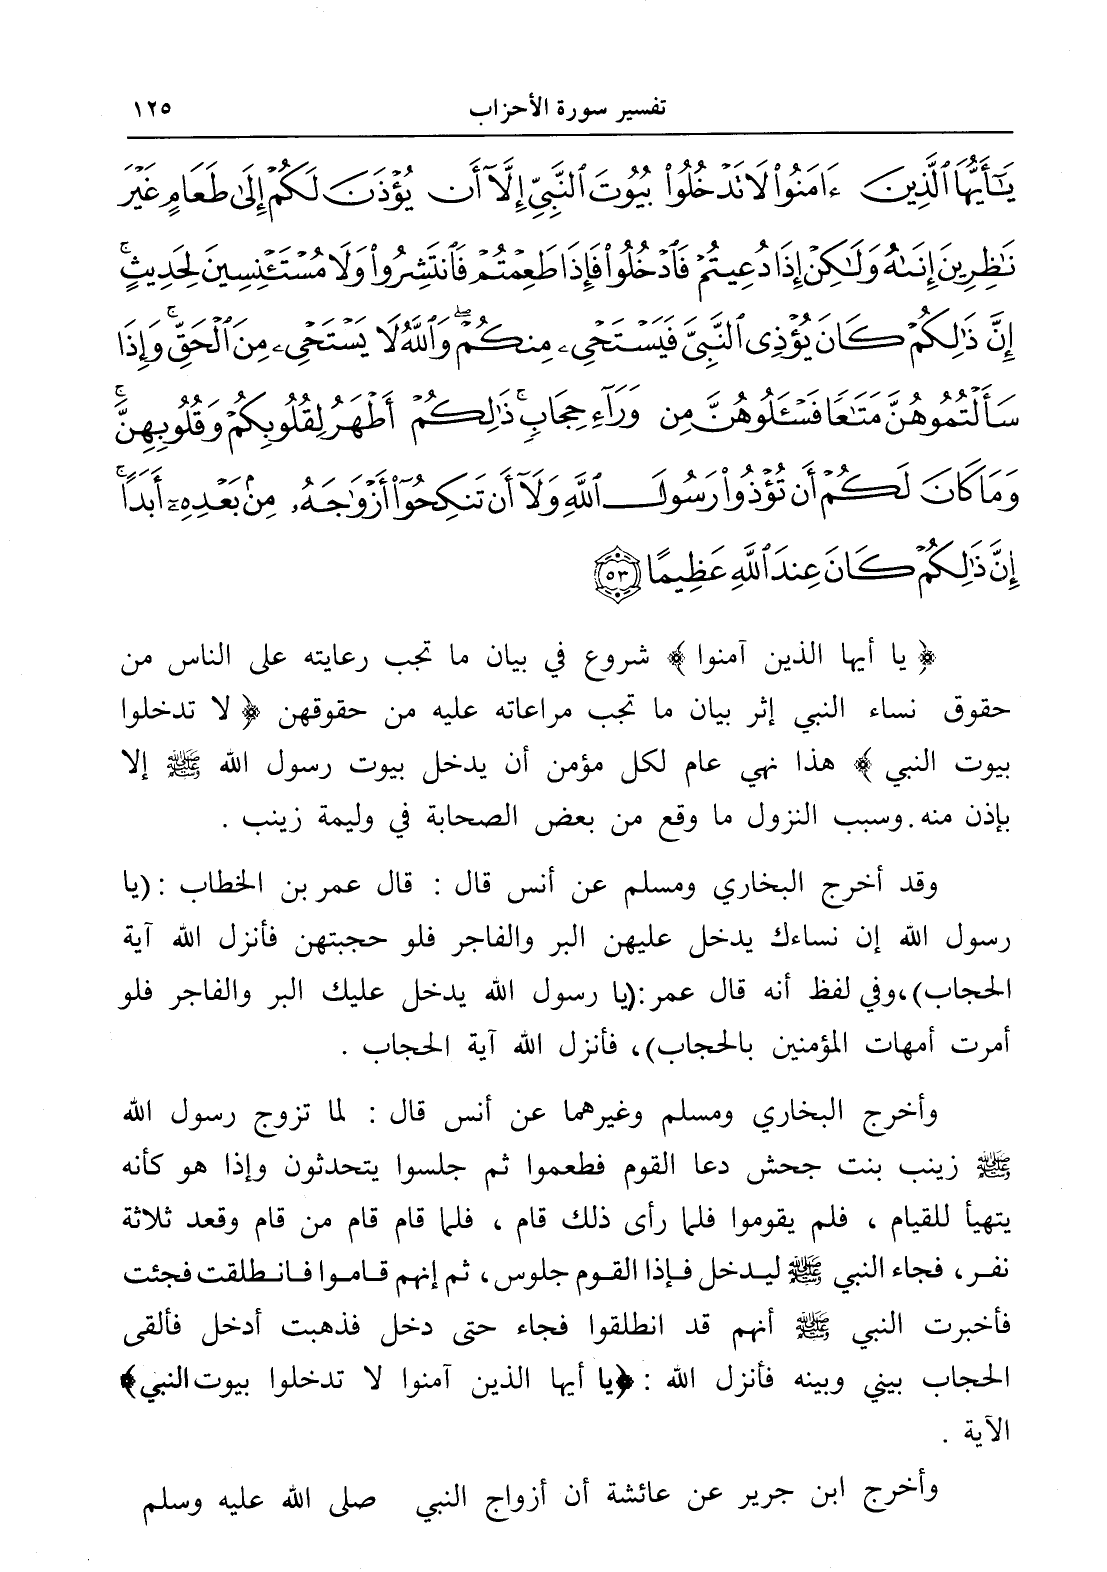 تفسير سورة الأحزاب ١٢٥
يَٰٓأَيُّهَا ٱلَّذِينَ ءَامَنُوا۟ لَا تَدْخُلُوا۟ بُيُوتَ ٱلنَّبِىِّ إِلَّآ أَن يُؤْذَنَ لَكُمْ إِلَىٰ طَعَامٍ غَيْرَ
نَٰظِرِينَ إِنَىٰهُ وَلَٰكِنْ إِذَا دُعِيتُمْ فَٱدْخُلُوا۟ فَإِذَا طَعِمْتُمْ فَٱنتَشِرُوا۟ وَلَا مُسْتَـْٔنِسِينَ لِحَدِيثٍ ۚ
إِنَّ ذَٰلِكُمْ كَانَ يُؤْذِى ٱلنَّبِىَّ فَيَسْتَحْىِۦ مِنكُمْ ۖ وَٱللَّهُ لَا يَسْتَحْىِۦ مِنَ ٱلْحَقِّ ۚ وَإِذَا
سَأَلْتُمُوهُنَّ مَتَٰعًا فَسْـَٔلُوهُنَّ مِن وَرَآءِ حِجَابٍ ۚ ذَٰلِكُمْ أَطْهَرُ لِقُلُوبِكُمْ وَقُلُوبِهِنَّ ۚ
وَمَا كَانَ لَكُمْ أَن تُؤْذُوا۟ رَسُولَ ٱللَّهِ وَلَآ أَن تَنكِحُوٓا۟ أَزْوَٰجَهُۥ مِنۢ بَعْدِهِۦٓ أَبَدًا ۚ
إِنَّ ذَٰلِكُمْ كَانَ عِندَ ٱللَّهِ عَظِيمًا ٥٣
﴿ يا أيها الذين آمنوا ﴾ شروع في بيان ما تجب رعايته على الناس من
حقوق نساء النبي إثر بيان ما تجب مراعاته عليه من حقوقهن ﴿ لا تدخلوا
بيوت النبي ﴾ هذا نهي عام لكل مؤمن أن يدخل بيوت رسول الله ﷺ إلا
بإذن منه. وسبب النزول ما وقع من بعض الصحابة في وليمة زينب .
وقد أخرج البخاري ومسلم عن أنس قال : قال عمر بن الخطاب : (يا
رسول الله إن نساءك يدخل عليهن البر والفاجر فلو حجبتهن فأنزل الله آية
الحجاب)، وفي لفظ أنه قال عمر: (يا رسول الله يدخل عليك البر والفاجر فلو
أمرت أمهات المؤمنين بالحجاب)، فأنزل الله آية الحجاب .
وأخرج البخاري ومسلم وغيرهما عن أنس قال : لما تزوج رسول الله
ﷺ زينب بنت جحش دعا القوم فطعموا ثم جلسوا يتحدثون وإذا هو كأنه
يتهيأ للقيام ، فلم يقوموا فلما رأى ذلك قام ، فلما قام قام من قام وقعد ثلاثة
نفر، فجاء النبي ﷺ ليدخل فإذا القوم جلوس، ثم إنهم قاموا فانطلقت فجئت
فأخبرت النبي ﷺ أنهم قد انطلقوا فجاء حتى دخل فذهبت أدخل فألقى
الحجاب بيني وبينه فأنزل الله : ﴿يا أيها الذين آمنوا لا تدخلوا بيوت النبي﴾
الآية .
وأخرج ابن جرير عن عائشة أن أزواج النبي صلى الله عليه وسلم